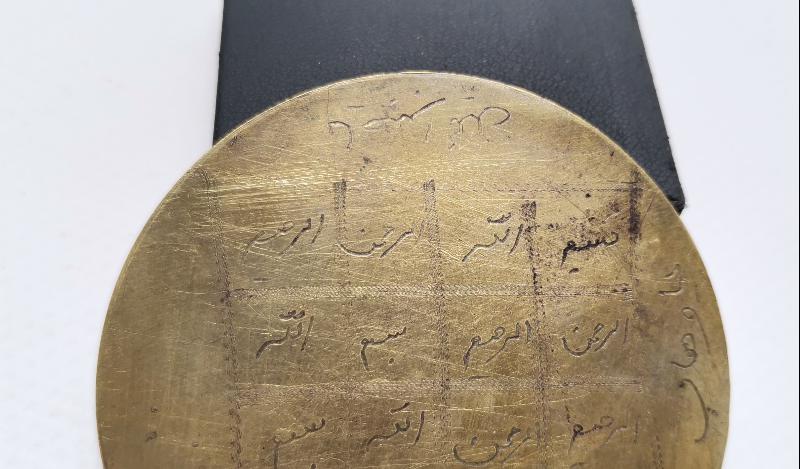 بسم الله الرحمن الرحيم
الرحمن الرحيم بسم الله
الرحيم الرحمن الله بسم
يا وهاب